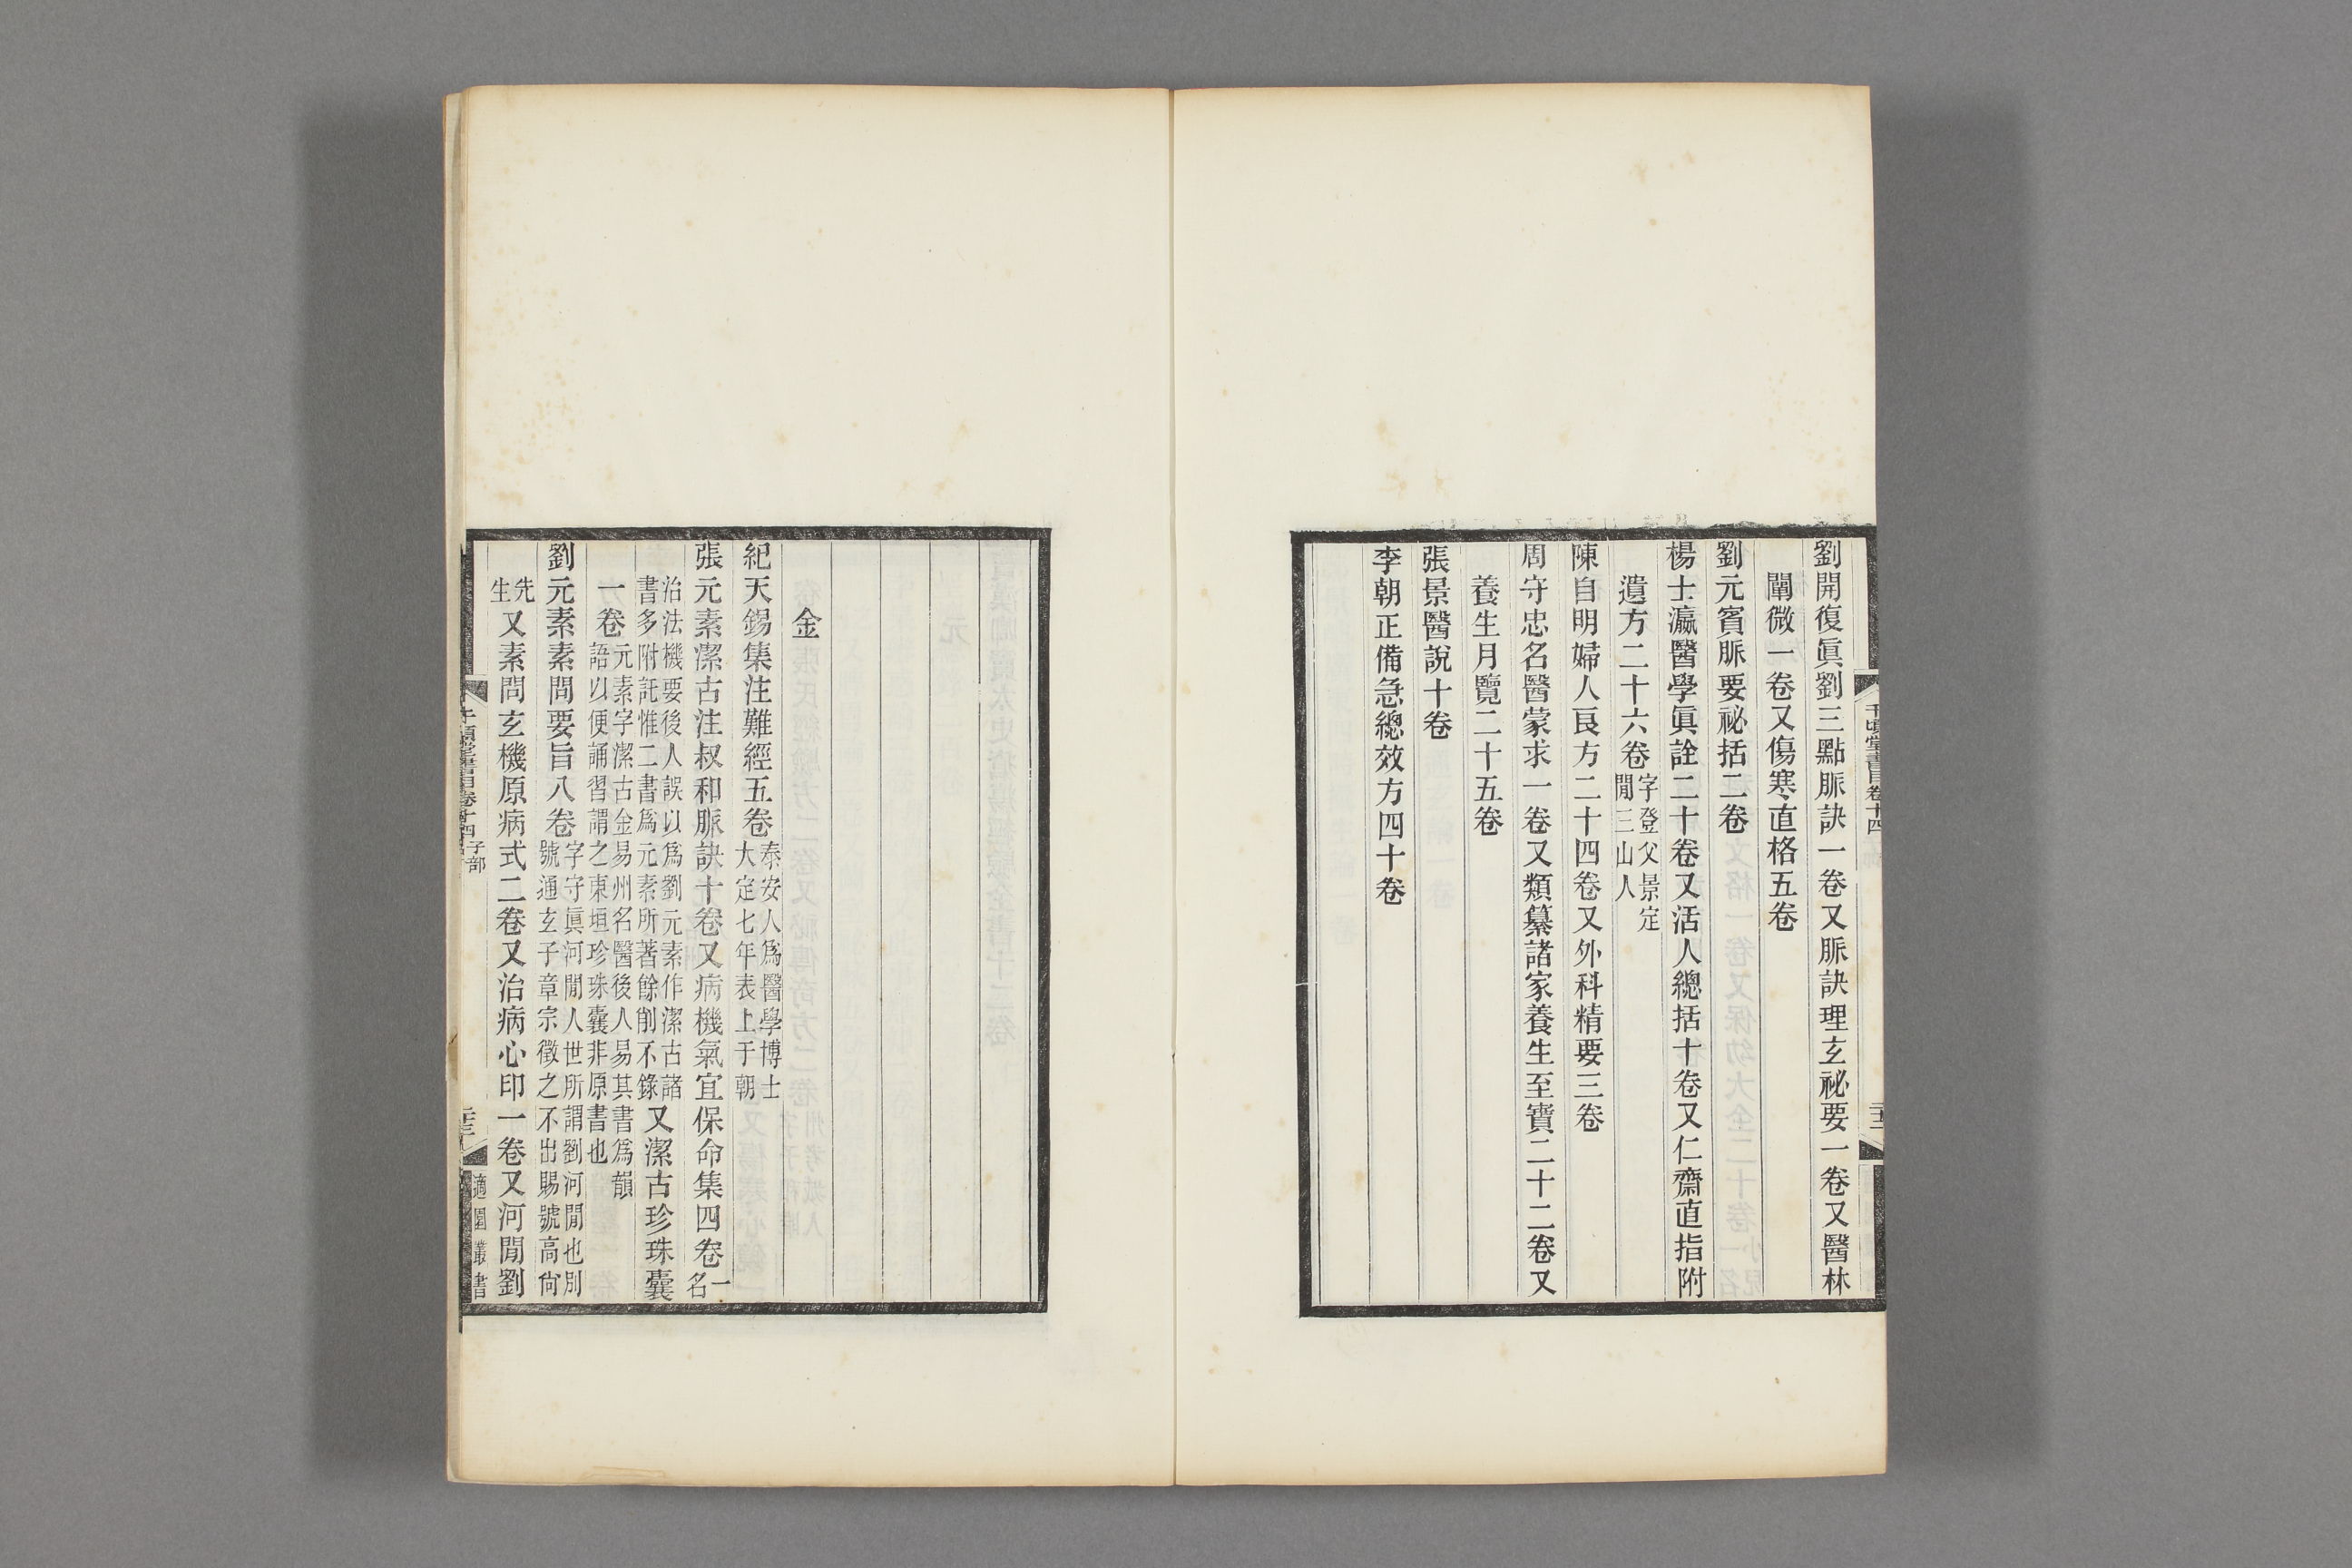 劉開復眞劉三點脈訣一卷又脈訣理玄祕要一卷又醫林
闡微一卷又傷寒直格五卷
劉元賓脈要祕括二卷
楊士瀛醫學眞詮二十卷又活人總括十卷又仁齋直指附
遺方二十六卷字登父景定閒三山人
陳自明婦人良方二十四卷又外科精要三卷
周守忠名醫蒙求一卷又類纂諸家養生至寶二十二卷又
養生月覽二十五卷
張景醫說十卷
李朝正備急總效方四十卷
金
紀天錫集注難經五卷泰安人爲醫學博士大定七年表上于朝
張元素潔古注叔和脈訣十卷又病機氣宜保命集四卷一名
治法機要後人誤以爲劉元素作潔古諸書多附託惟二書爲元素所著餘削不錄又潔古珍珠囊
一卷元素字潔古金易州名醫後人易其書爲韻語以便誦習謂之東垣珍珠囊非原書也
劉元素素問要旨八卷字守眞河閒人世所謂劉河閒也別號通玄子章宗徵之不出賜號高尙
先生又素問玄機原病式二卷又治病心印一卷又河閒劉
千頃堂書目卷十四
子部
適園叢書